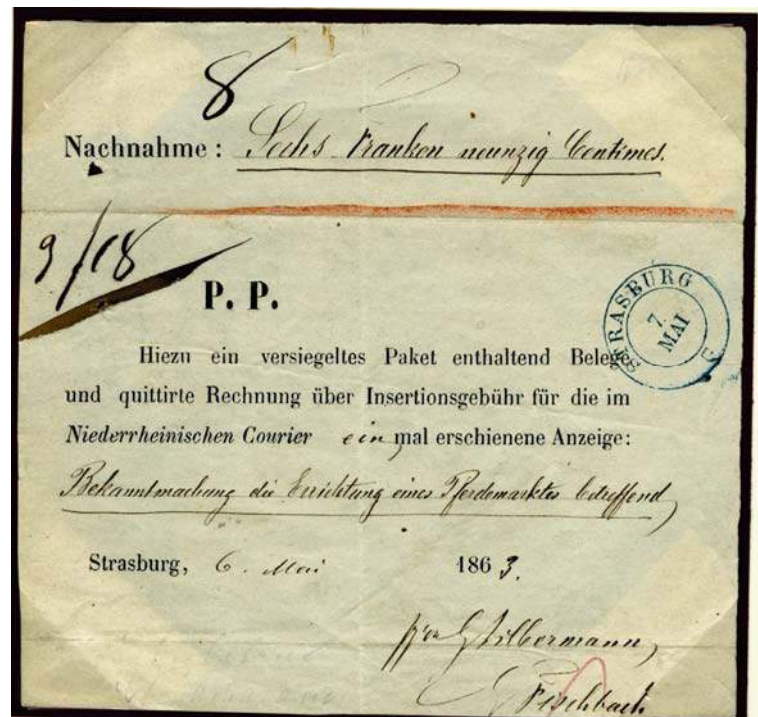 8
Nachnahme: Sechs Franken neunzig Centimes.
9/18
P. P.
STRASBURG
7.
MAI
Hiezu ein versiegeltes Paket enthaltend Belege
und quittirte Rechnung über Insertionsgebühr für die im
Niederrheinischen Courier ein mal erschienene Anzeige:
Bekanntmachung die Errichtung eines Pferdemarktes betreffend
Strasburg, 6. Mai 1863.
G Silbermann,
Fischbach